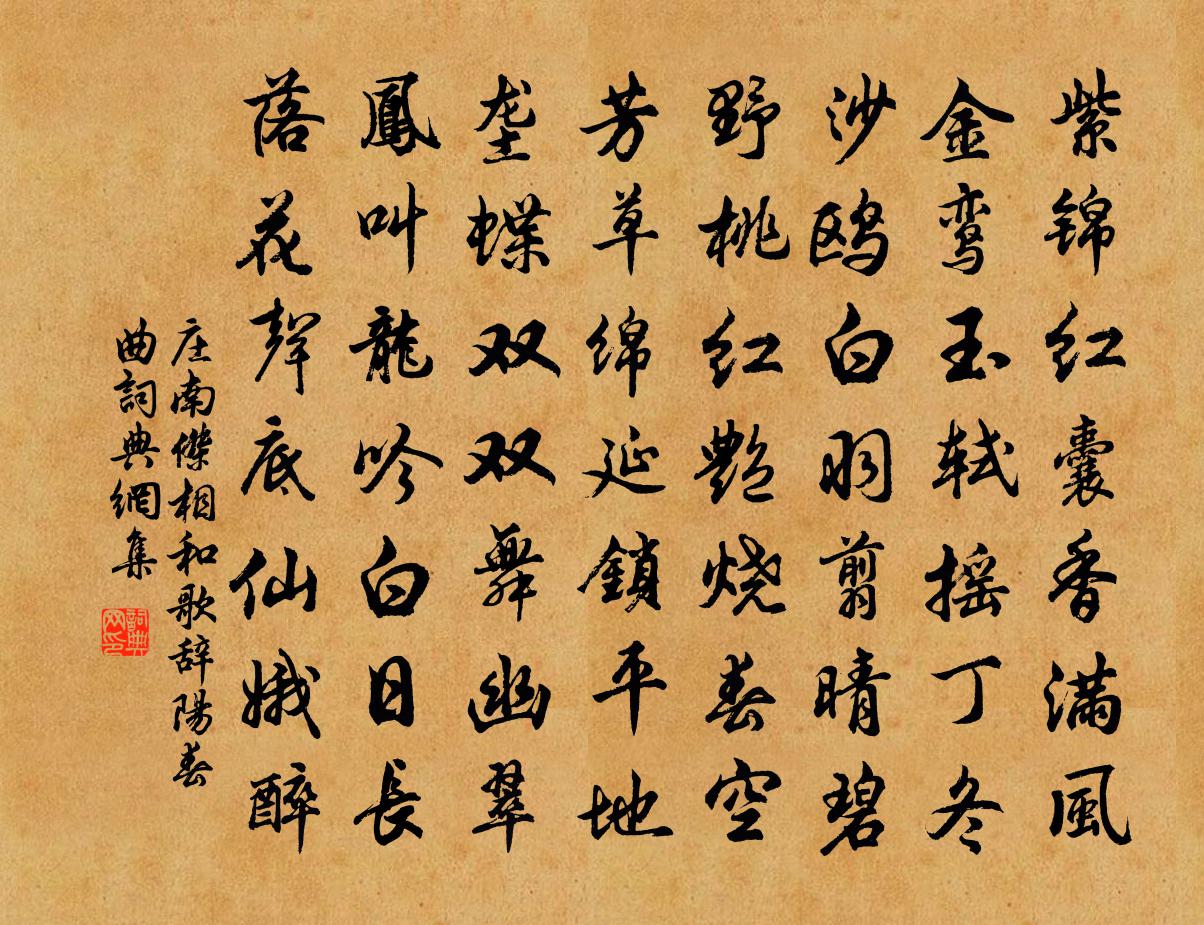 紫锦红囊香满風
金鸾玉轼摇丁冬
沙鸥白羽剪晴碧
野桃红艳烧春空
芳草绵延鎖平地
垄蝶双双舞幽翠
鳳叫龍吟白日長
落花聲底仙娥醉
庄南傑相和歌辞陽春
曲詞典網集
詞典网印